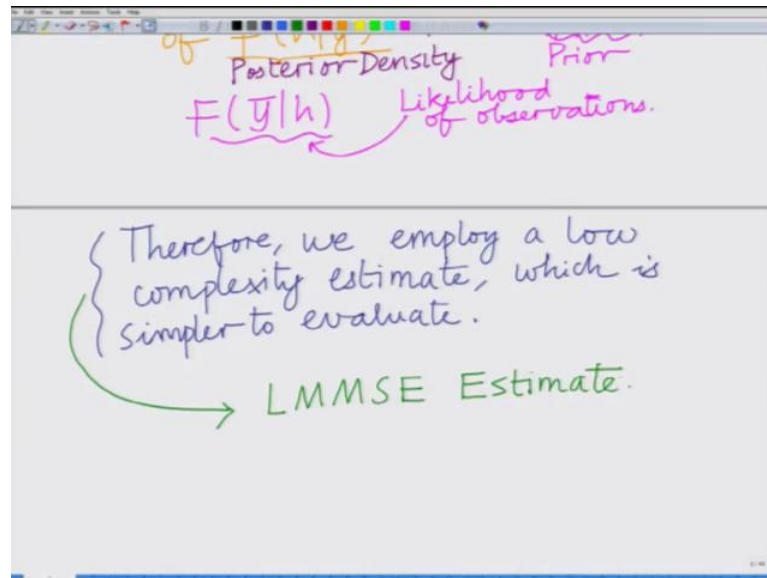 of F(h|ȳ)
Posterior Density
Prior
F(ȳ|h)
Likelihood
of observations.
Therefore, we employ a low
complexity estimate, which is
simpler to evaluate.
LMMSE Estimate.